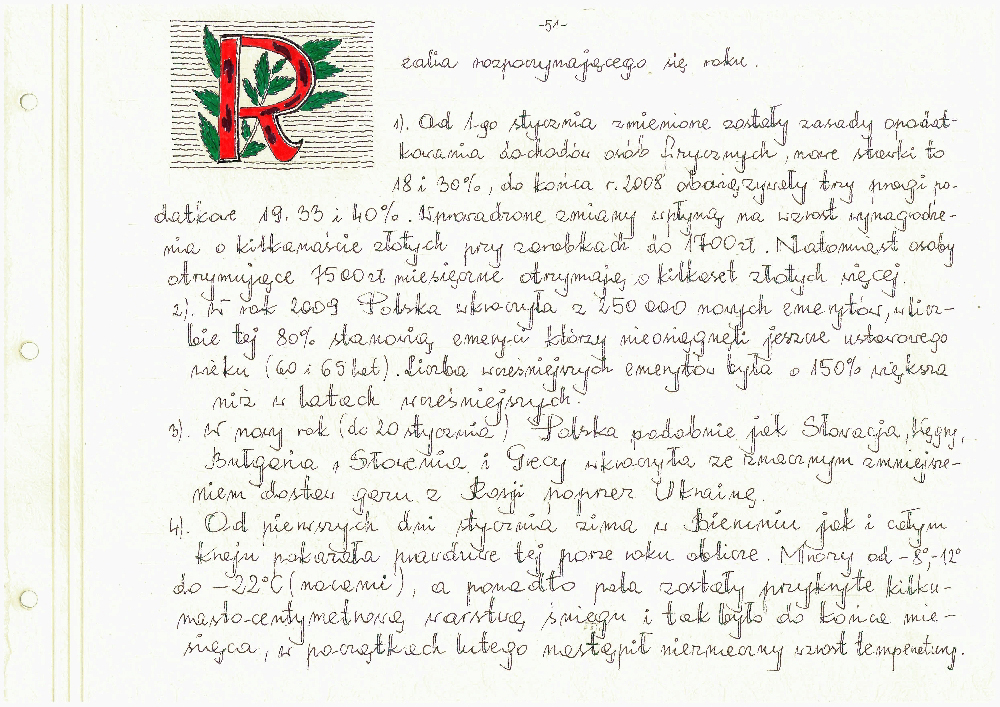 -51-
Realia rozpoczynającego się roku.
1). Od 1-go stycznia zmienione zostały zasady opodat-
kowania dochodów osób fizycznych, nowe stawki to
18 i 30%, do końca r. 2008 obowięzywały trzy progi po-
datkowe 19. 33 i 40%. Wprowadzone zmiany wpłyną na wzrost wynagrodze-
nia o kilkanaście złotych przy zarobkach do 1700zł. Natomiast osoby
otrzymujące 7500zł miesięcznie otrzymają o kilkaset złotych więcej.
2). W rok 2009 Polska wkroczyła z 250 000 nowych emerytów, w licz-
bie tej 80% stanowią emeryci którzy nieosięgnęli jeszcze ustawowego
wieku (60 i 65 lat). Liczba wcześniejszych emerytów była o 150% większa
niż w latach wcześniejszych.
3). W nowy rok (do 20 stycznia) Polska podobnie jak Słowacja, Węgry,
Bułgaria, Słowenia i Grecy wkroczyła ze znacznym zmniejsze-
niem dostaw gazu z Rosji poprzez Ukrainę.
4). Od pierwszych dni stycznia zima w Bieruniu jak i całym
kraju pokazała prawdziwe tej porze roku oblicze. Mrozy od -8°,-12°
do -22°C (nocami), a ponadto pola zostały przykryte kilku-
nasto-centymetrową warstwą śniegu i tak było do końca mie-
siąca, w początkach lutego nastąpił nieznaczny wzrost temperatury.